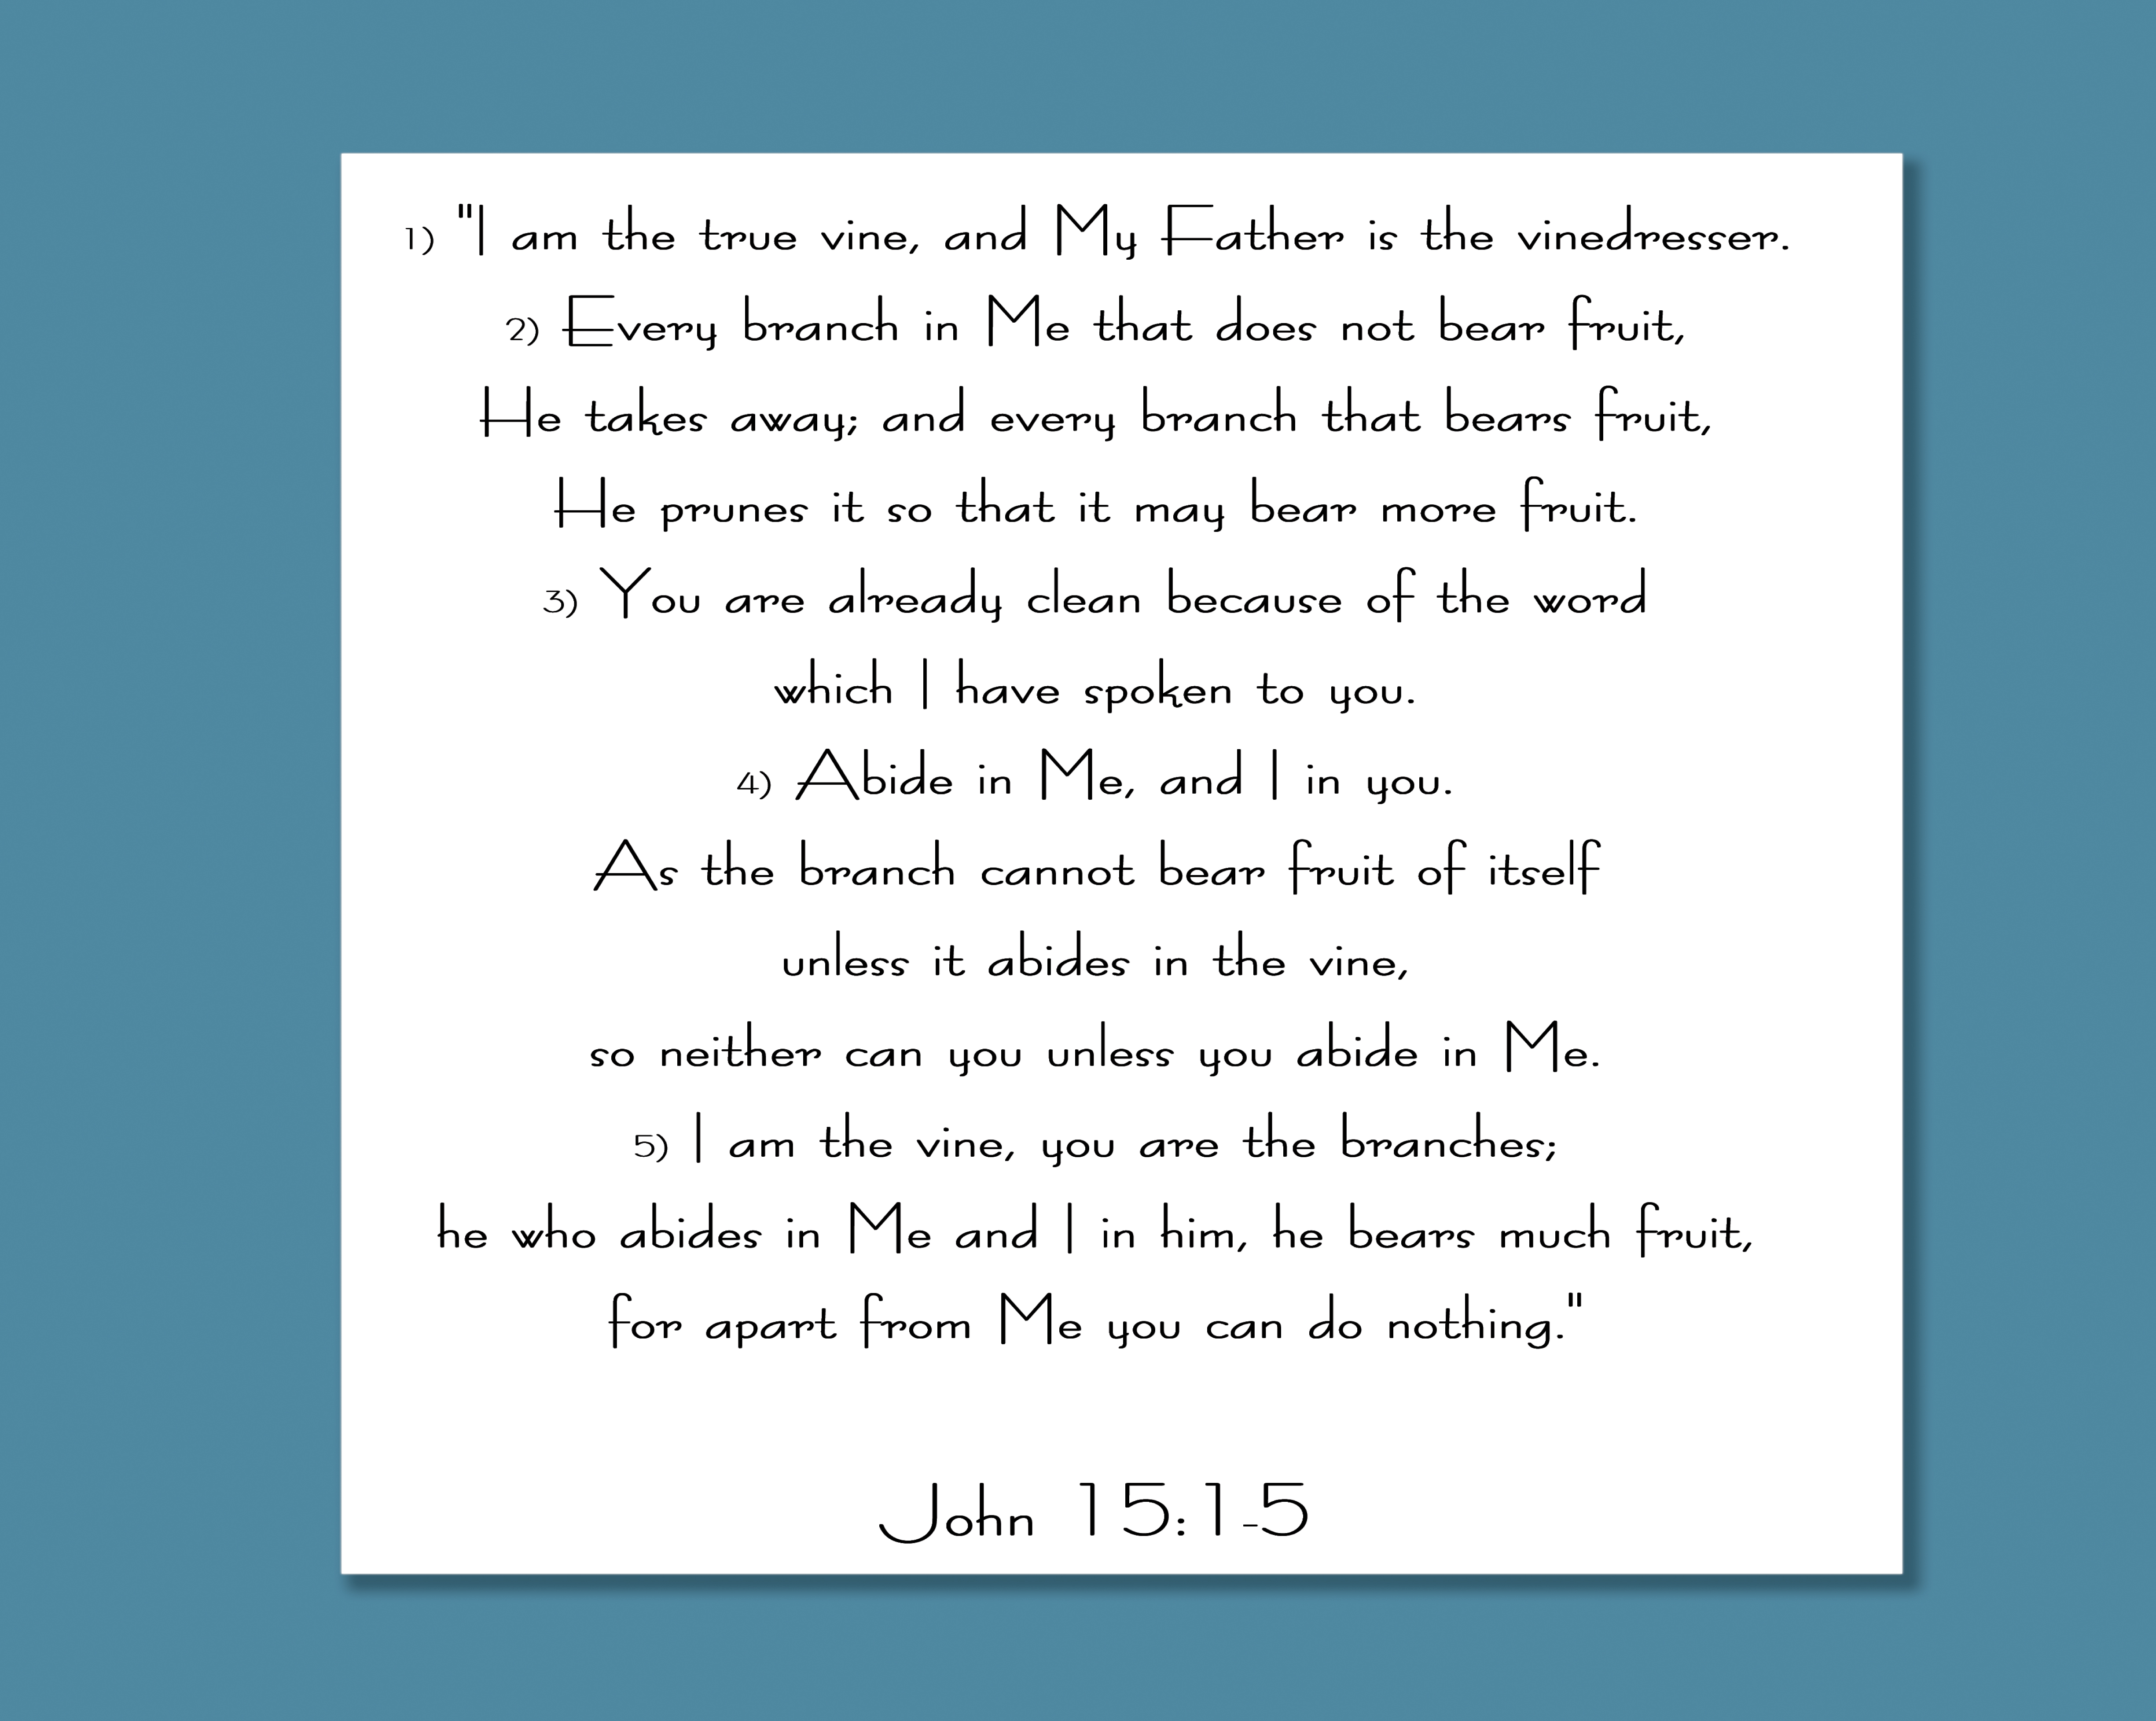 1) "I am the true vine, and My Father is the vinedresser.
2) Every branch in Me that does not bear fruit,
He takes away; and every branch that bears fruit,
He prunes it so that it may bear more fruit.
3) You are already clean because of the word
which I have spoken to you.
4) Abide in Me, and I in you.
As the branch cannot bear fruit of itself
unless it abides in the vine,
so neither can you unless you abide in Me.
5) I am the vine, you are the branches;
he who abides in Me and I in him, he bears much fruit,
for apart from Me you can do nothing."
John 15:1-5